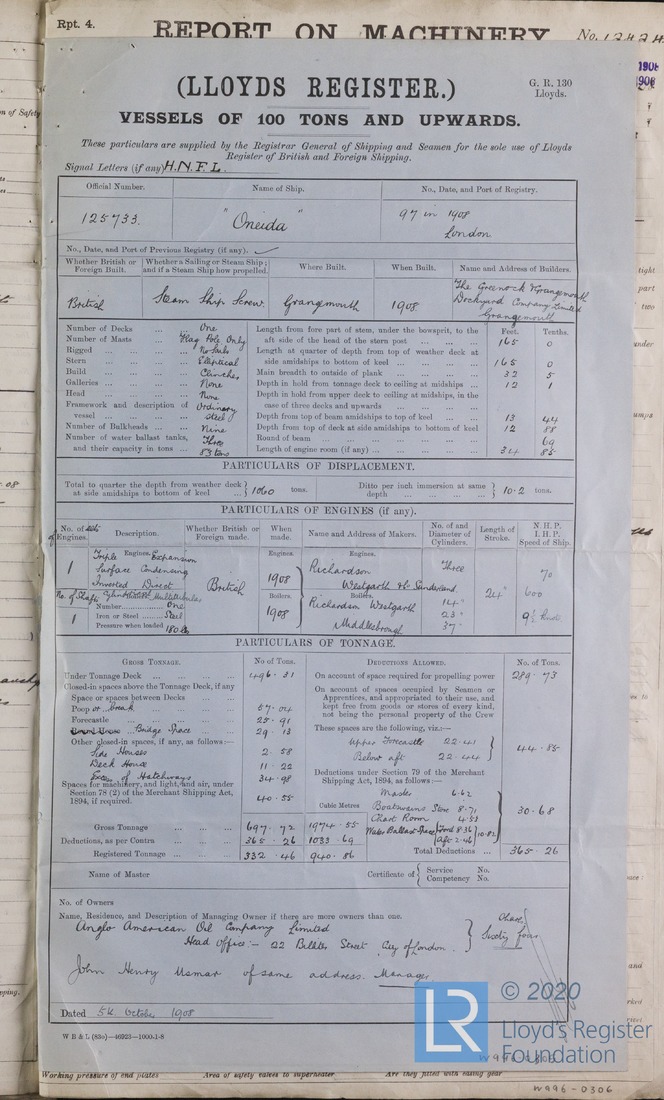 Rpt. 4.
REPORT ON MACHINERY
No.
(LLOYDS REGISTER.)
G. R. 130
Lloyds.
VESSELS OF 100 TONS AND UPWARDS.
These particulars are supplied by the Registrar General of Shipping and Seamen for the sole use of Lloyds
Register of British and Foreign Shipping.
Signal Letters (if any) H.N.F.L.
Official Number. Name of Ship. No., Date, and Port of Registry.
125733. "Oneida" 97 in 1908
London
No., Date, and Port of Previous Registry (if any).
Whether British or Foreign Built. Whether a Sailing or Steam Ship; and if a Steam Ship how propelled. Where Built. When Built. Name and Address of Builders.
British Steam Ship Screw. Grangemouth 1908. The Greenock & Grangemouth
Dockyard Company Limited
Grangemouth
Number of Decks ... One
Number of Masts ... Flag Pole Only
Rigged
Stern Elliptical
Build Clincher
Galleries ... None
Head ... None
Framework and description of vessel ... Ordinary Steel
Number of Bulkheads ... Nine
Number of water ballast tanks, Three
and their capacity in tons ... 83 tons
Feet. Tenths.
Length from fore part of stem, under the bowsprit, to the
aft side of the head of the stern post 165 0
Length at quarter of depth from top of weather deck at
side amidships to bottom of keel 165 0
Main breadth to outside of plank 32 5
Depth in hold from tonnage deck to ceiling at midships 12 1
Depth in hold from upper deck to ceiling at midships, in the
case of three decks and upwards
Depth from top of beam amidships to top of keel 13 44
Depth from top of deck at side amidships to bottom of keel 12 88
Round of beam 69
Length of engine room (if any) 34 85
PARTICULARS OF DISPLACEMENT.
Total to quarter the depth from weather deck at side amidships to bottom of keel 1060 tons. Ditto per inch immersion at same depth 10.2 tons.
PARTICULARS OF ENGINES (if any).
No. of sets of Engines. Description. Whether British or Foreign made. When made. Name and Address of Makers. No. of and Diameter of Cylinders. Length of Stroke. N.H.P. I.H.P. Speed of Ship.
Engines. Engines. Engines.
1 Triple Expansion
Surface Condensing
Inverted Direct
British 1908 Richardson
Westgarth & Co Sunderland
Three
24"
70
600
No. of Shafts
1
Boilers. Boilers.
Number One
Iron or Steel Steel
Pressure when loaded 180 lbs
1908 Richardson Westgarth
Middlesbrough
14"
23"
37"
PARTICULARS OF TONNAGE.
GROSS TONNAGE. No of Tons.
Under Tonnage Deck 496.31
Closed-in spaces above the Tonnage Deck, if any
Space or spaces between Decks
Poop or break 57.04
Forecastle 25.91
Bridge Space 29.13
Other closed-in spaces, if any, as follows:—
Side Houses 2.58
Deck House 11.22
Excess of Hatchways 34.98
Spaces for machinery, and light, and air, under
Section 78 (2) of the Merchant Shipping Act,
1894, if required. 40.55
Cubic Metres
Gross Tonnage 697.72 1974.55
Deductions, as per Contra 365.26 1033.69
Registered Tonnage 332.46 940.86
DEDUCTIONS ALLOWED. No. of Tons.
On account of space required for propelling power 289.73
On account of spaces occupied by Seamen or
Apprentices, and appropriated to their use, and
kept free from goods or stores of every kind,
not being the personal property of the Crew
These spaces are the following, viz.:—
Upper Forecastle 22.41
Below aft 22.44
44.85
Deductions under Section 79 of the Merchant
Shipping Act, 1894, as follows:—
Master 6.62
Boatswains Store 8.71
Chart Room 4.53
Water Ballast Space Ford 8.36 Aft 2.46 10.82
30.68
Total Deductions 365.26
Name of Master Certificate of Service No.
Competency No.
No. of Owners
Name, Residence, and Description of Managing Owner if there are more owners than one.
Anglo American Oil Company Limited
Head Office:- 22 Billiter Street, City of London.
Sixty four
John Henry Usmar of same address. Manager
Dated 5th October 1908
W B & L (83o)—46923—1000-1-8
LR
© 2020
Lloyd's Register
Foundation
Working pressure of end plates Area of safety valves to superheater Are they fitted with easing gear
W996-0306